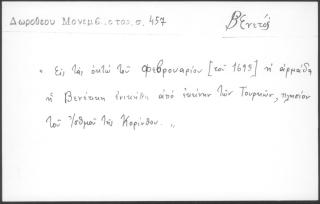 Δωροθέου Μονεμβασίας, σ. 457
Βενετός
« Εἰς τὰς ὀκτὼ τοῦ Φεβρουαρίου [τοῦ 1695] ἡ ἁρμάδα
ἡ Βενέτικη ἐνικήθη ἀπὸ ἐκείνην τῶν Τουρκῶν, πλησίον
τοῦ Ἰσθμοῦ τῆς Κορίνθου. »